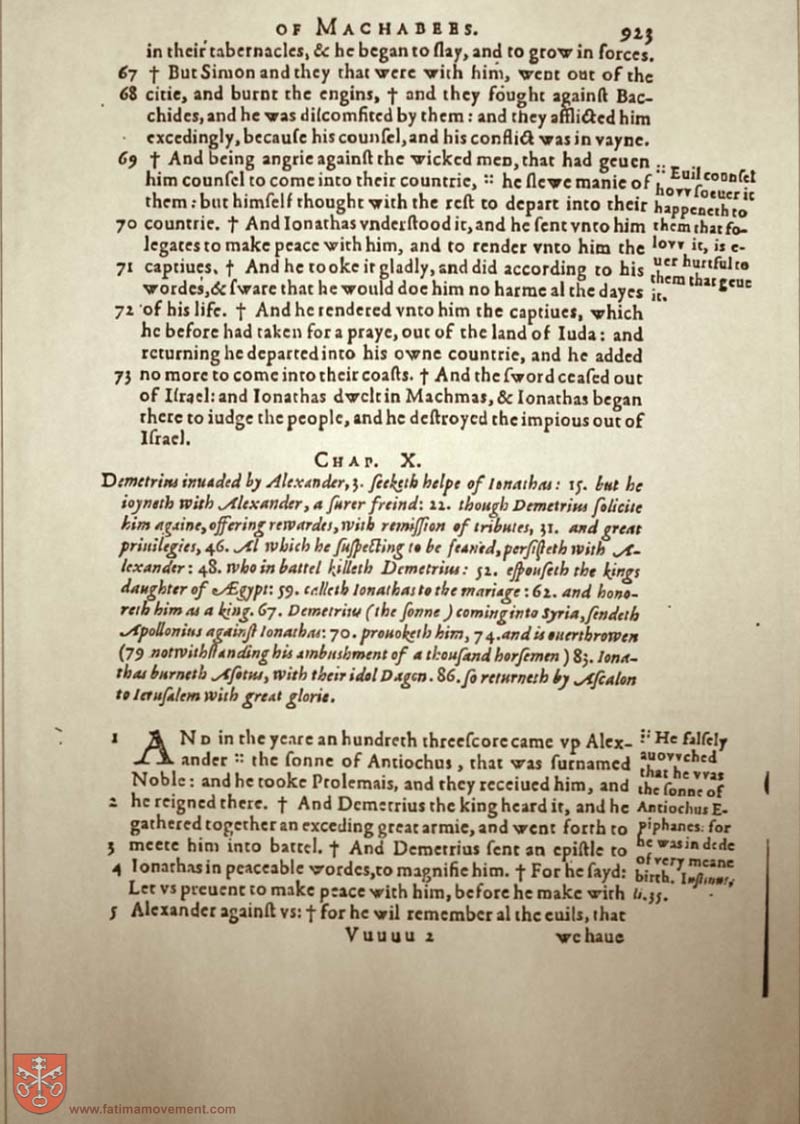 OF MACHABEES. 923
in their tabernacles, & he began to ſlay, and to grow in forces.
67 † But Simon and they that were with him, went out of the
68 citie, and burnt the engins, † and they fought againſt Bac-
chides, and he was diſcomfited by them: and they afflicted him
excedingly, becauſe his counſel, and his conflict was in vayne.
69 † And being angrie againſt the wicked men, that had geuen
him counſel to come into their countrie, :: he ſlewe manie of
them: but himſelf thought with the reſt to depart into their
70 countrie. † And Ionathas vnderſtood it, and he ſent vnto him
legates to make peace with him, and to render vnto him the
71 captiues. † And he tooke it gladly, and did according to his
wordes, & ſware that he would doe him no harme al the dayes
72 of his life. † And he rendered vnto him the captiues, which
he before had taken for a praye, out of the land of Iuda: and
returning he departed into his owne countrie, and he added
73 no more to come into their coaſts. † And the ſword ceaſed out
of Iſrael: and Ionathas dwelt in Machmas, & Ionathas began
there to iudge the people, and he deſtroyed the impious out of
Iſrael.
:: Euil counſel
hovv ſoeuer it
happeneth to
them that fo-
lovv it, is e-
uer hurtful to
them that geue
it.
CHAP. X.
Demetrius inuaded by Alexander, 3. ſeeketh helpe of Ionathas: 15. but he
ioyneth with Alexander, a ſurer freind: 22. though Demetrius ſolicite
him againe, offering rewardes, with remiſſion of tributes, 31. and great
priuilegies, 46. Al which he ſuſpecting to be feaned, perſiſteth with A-
lexander: 48. who in battel killeth Demetrius: 52. eſpouſeth the kings
daughter of Ægypt: 59. calleth Ionathas to the mariage: 62. and hono-
reth him as a king. 67. Demetrius (the ſonne) coming into Syria, ſendeth
Apollonius againſt Ionathas: 70. prouoketh him, 74. and is ouerthrowen
(79 notwithſtanding his ambushment of a thouſand horſemen) 83. Iona-
thas burneth Aſotus, with their idol Dagon. 86. ſo returneth by Aſcalon
to Ieruſalem with great glorie.
1 AND in the yeare an hundreth threeſcore came vp Alex-
ander :: the ſonne of Antiochus, that was ſurnamed
Noble: and he tooke Ptolemais, and they receiued him, and
2 he reigned there. † And Demetrius the king heard it, and he
gathered together an exceding great armie, and went forth to
3 meete him into battel. † And Demetrius ſent an epiſtle to
4 Ionathas in peaceable wordes, to magnifie him. † For he ſayd:
Let vs preuent to make peace with him, before he make with
5 Alexander againſt vs: † for he wil remember al the euils, that
:: He falſely
auovvched
that he vvas
the ſonne of
Antiochus E-
piphanes: for
he was in dede
of very meane
birth. Iuſtinus,
li. 35.
Vuuuu 2 we haue
www.fatimamovement.com